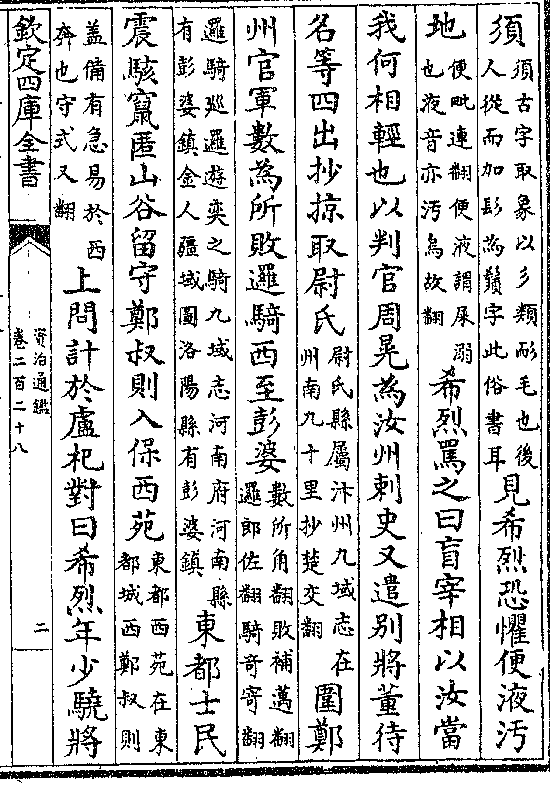 須須古字取象以彡類耏毛也後人從而加髟為鬚字此俗書耳見希烈恐懼便液汚
地便毗連翻便液謂屎溺也液音亦汚烏故翻希烈罵之曰盲宰相以汝當
我何相輕也以判官周晃為汝州刺史又遣别將董待
名等四出抄掠取尉氏尉氏縣屬汴州九域志在州南九十里抄楚交翻圍鄭
州官軍數為所敗邏騎西至彭婆數所角翻敗補邁翻邏郎佐翻騎奇寄翻
邏騎廵邏遊奕之騎九域志河南府河南縣有彭婆鎮金人疆域圖洛陽縣有彭婆鎮東都士民
震駭竄匿山谷留守鄭叔則入保西苑東都西苑在東都城西鄭叔則
蓋備有急易於西奔也守式又翻上問計於盧杞對曰希烈年少驍將
欽定四庫全書
資治通鑑
卷二百二十八
二